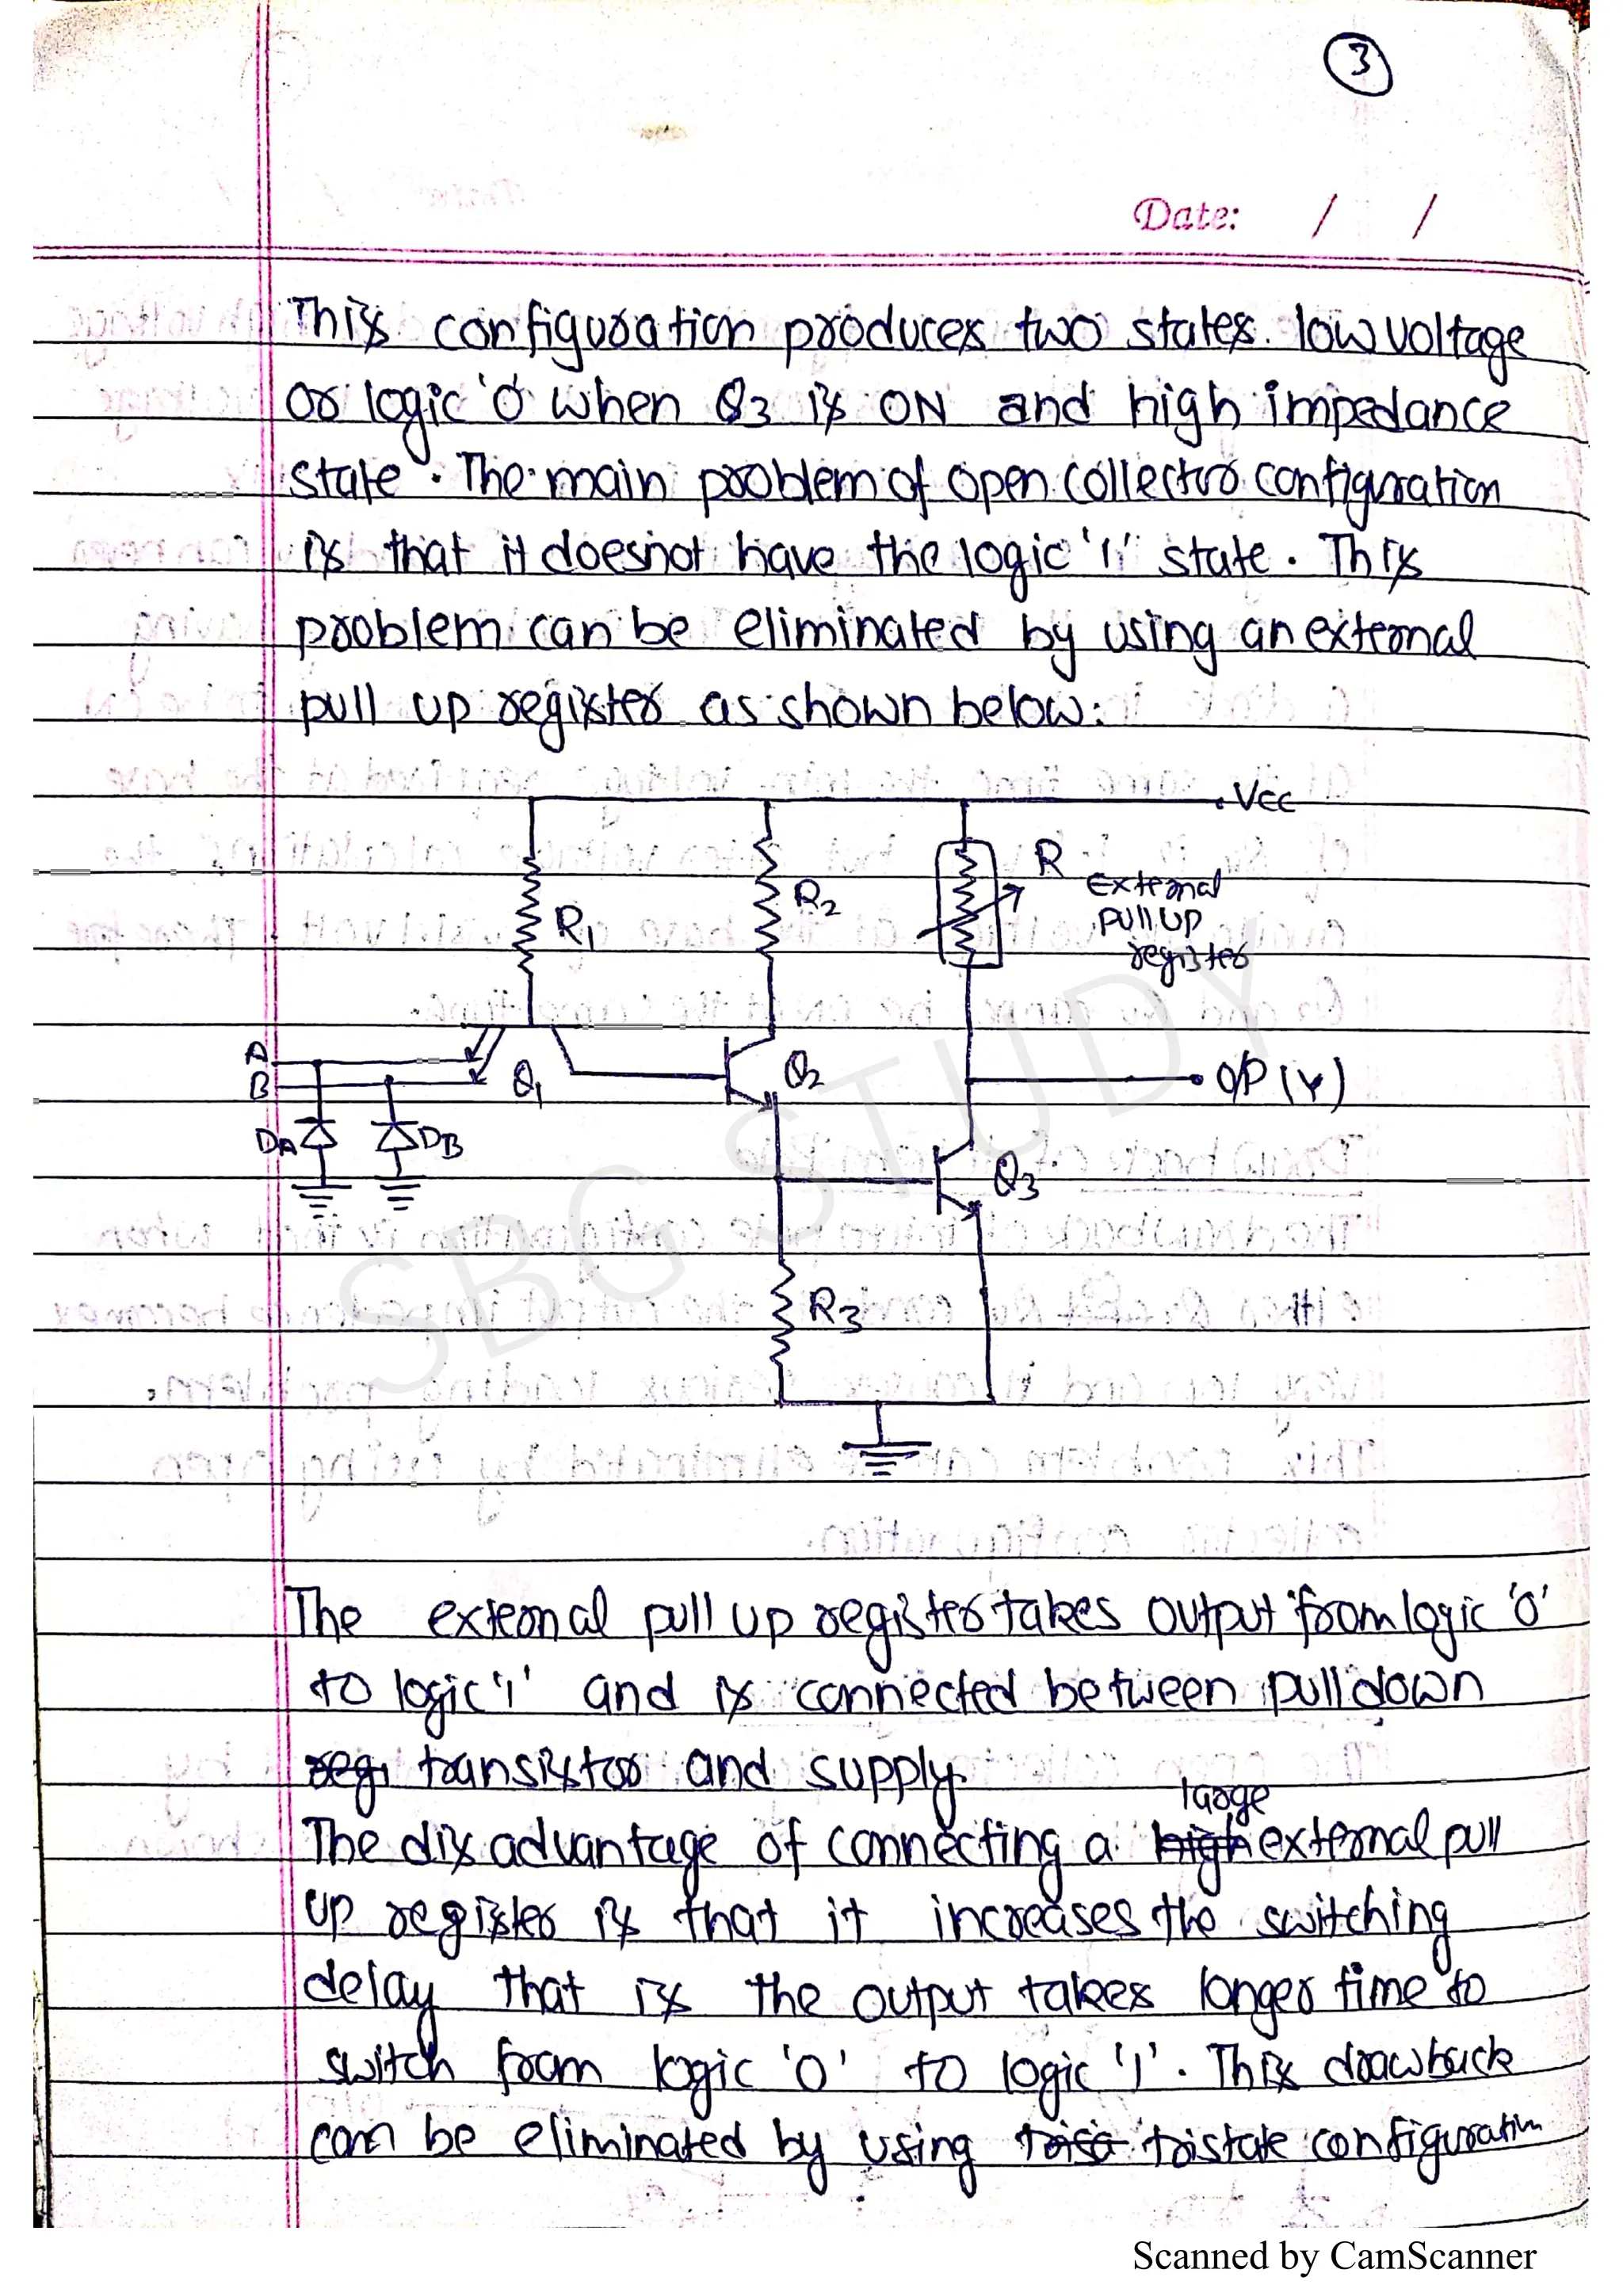 3
Date: / /
This configuration produces two states. low voltage
or logic '0' when Q3 is ON and high impedance
state. The main problem of open collector configuration
is that it doesnot have the logic '1' state. This
problem can be eliminated by using an external
pull up register as shown below:
Vcc
R1
R2
R
External
pull up
register
A
B
Q1
Q2
O/P (Y)
DA
DB
Q3
R3
SBG STUDY
The external pull up register takes output from logic '0'
to logic '1' and is connected between pull down
regi transistor and supply.
large
The disadvantage of connecting a high external pull
up register is that it increases the switching
delay that is the output takes longer time to
switch from logic '0' to logic '1'. This drawback
can be eliminated by using trist tristate configuration
Scanned by CamScanner